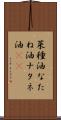 菜種油なた
ね油ナタネ
油